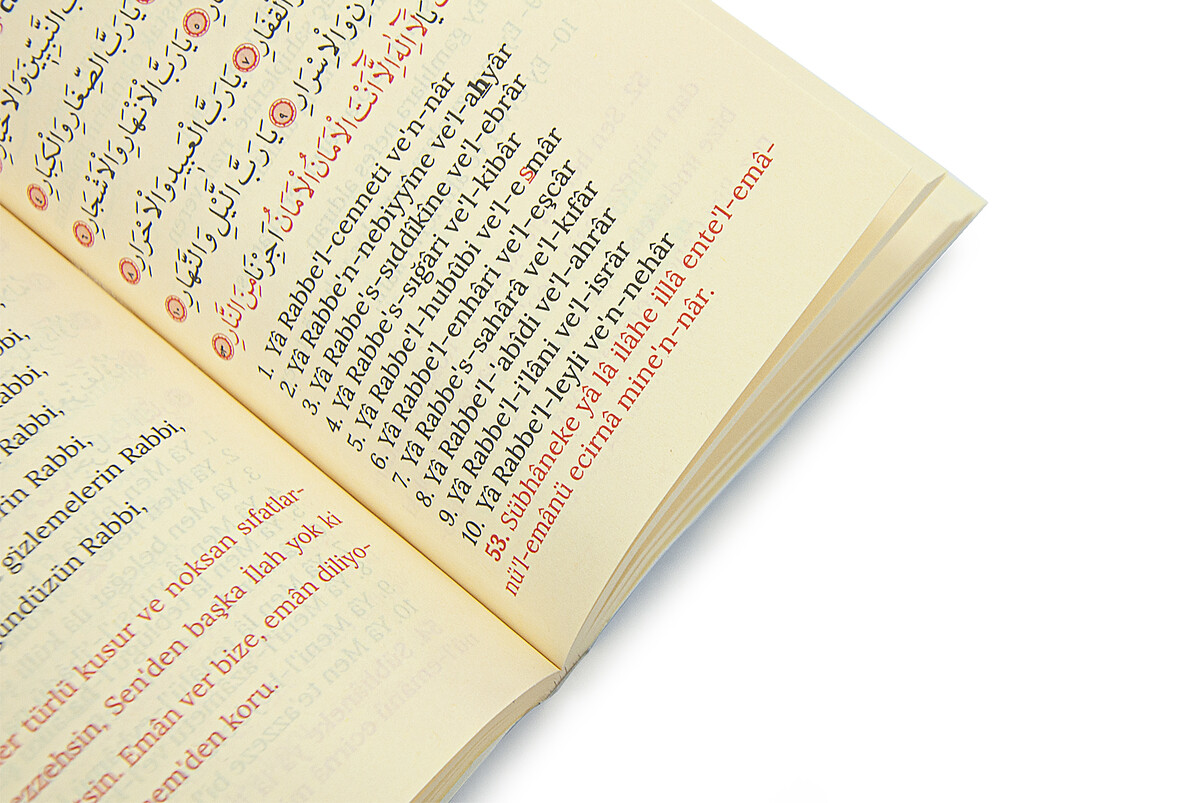 النَّبِيِّينَ وَالْاَخْيَارِ
يَارَبَّ الصِّغَارِ وَالْكِبَارِ ٤
يَارَبَّ الْاَنْهَارِ وَالْاَشْجَارِ ٦ ٥
يَارَبَّ الْعَبِيدِ وَالْاَحْرَارِ ٨ ٧ الْقِفَارِ
يَارَبَّ الَّيْلِ وَالنَّهَارِ ١٠ ٩ وَالْاِسْرَارِ
يَالَٓا اِلٰهَ اِلَّٓا اَنْتَ الْاَمَانُ الْاَمَانُ اَجِرْنَا مِنَ النَّارِ
1. Yâ Rabbe'l-cenneti ve'n-nâr
2. Yâ Rabbe'n-nebiyyîne ve'l-ahyâr
3. Yâ Rabbe's-sıddîkîne ve'l-ebrâr
4. Yâ Rabbe's-sigâri ve'l-kibâr
5. Yâ Rabbe'l-hubûbi ve'l-esmâr
6. Yâ Rabbe'l-enhâri ve'l-eşcâr
7. Yâ Rabbe's-sahârâ ve'l-kıfâr
8. Yâ Rabbe'l-'abîdi ve'l-ahrâr
9. Yâ Rabbe'l-i'lâni ve'l-isrâr
10. Yâ Rabbe'l-leyli ve'n-nehâr
53. Sübhâneke yâ lâ ilâhe illâ ente'l-emâ-
nü'l-emânü ecirnâ mine'n-nâr.
Rabbi,
Rabbi,
Rabbi,
gizlemelerin Rabbi,
gündüzün Rabbi,
türlü kusur ve noksan sıfatlar-
Sen'den başka İlah yok ki
Emân ver bize, emân diliyo-
koru.